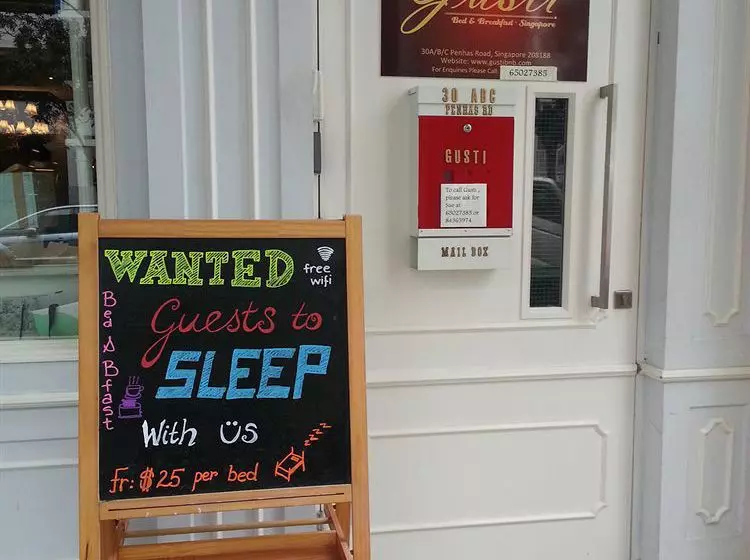 Gusti
Bed & Breakfast - Singapore
30A/B/C Penhas Road, Singapore 208188
Website: www.gustibnb.com
For Enquiries Please Call 65027385
30 ABC
PENHAS RD
GUSTI
To call Gusti ,
please ask for
Sue at
65027385 or
84363974
MAIL BOX
WANTED
free
wifi
Guests to
SLEEP
Bed & Bfast
With Us
fr: $25 per bed